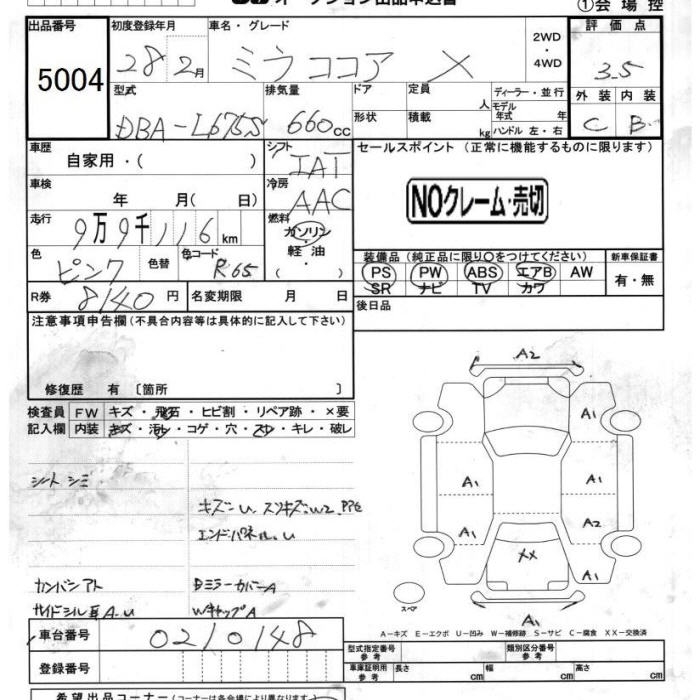 オークション出品申込書
①会場控
出品番号 初度登録年月 車名・グレード 評価点
5004 28 2月 ミラココア X 2WD・4WD 3.5
型式 排気量 ドア 定員 人 ディーラー・並行 外装 内装
DBA-L675S 660cc 形状 積載 kg モデル年式 年 ハンドル 左・右 C B
車歴 自家用・( ) シフト IAT セールスポイント (正常に機能するものに限ります)
車検 年 月( 日) 冷房 AAC NOクレーム・売切
走行 9万9千116km 燃料 ガソリン・軽油・( )
色 ピンク 色替 色コード R65 装備品(純正品に限り○をつけてください) 新車保証書
PS PW ABS エアB AW 有・無
SR ナビ TV カワ
R券 8140円 名変期限 月 日 後日品
注意事項申告欄(不具合内容等は具体的に記入して下さい)
修復歴 有 〔箇所 〕
検査員 FW キズ・飛石・ヒビ割・リペア跡・×要
記入欄 内装 キズ・汚レ・コゲ・穴・スレ・キレ・破レ
シートシミ
キズ〜U スリキズ〜W2 PPG
エンドパネルU
カンバンアト Dミラーカバー A
サイドシル耳A〜U WキャップA
A2
A1
A1 A1
A1 A2
XX
A1
A1
スペア
A−キズ E−エクボ U−凹み W−補修跡 S−サビ C−腐食 XX−交換済
車台番号 0210148
型式指定番号 参考 類別区分番号 参考
登録番号 車庫証明用 参考 長さ cm 幅 cm 高さ cm
希望出品コーナー(コーナーは各会場により異なります